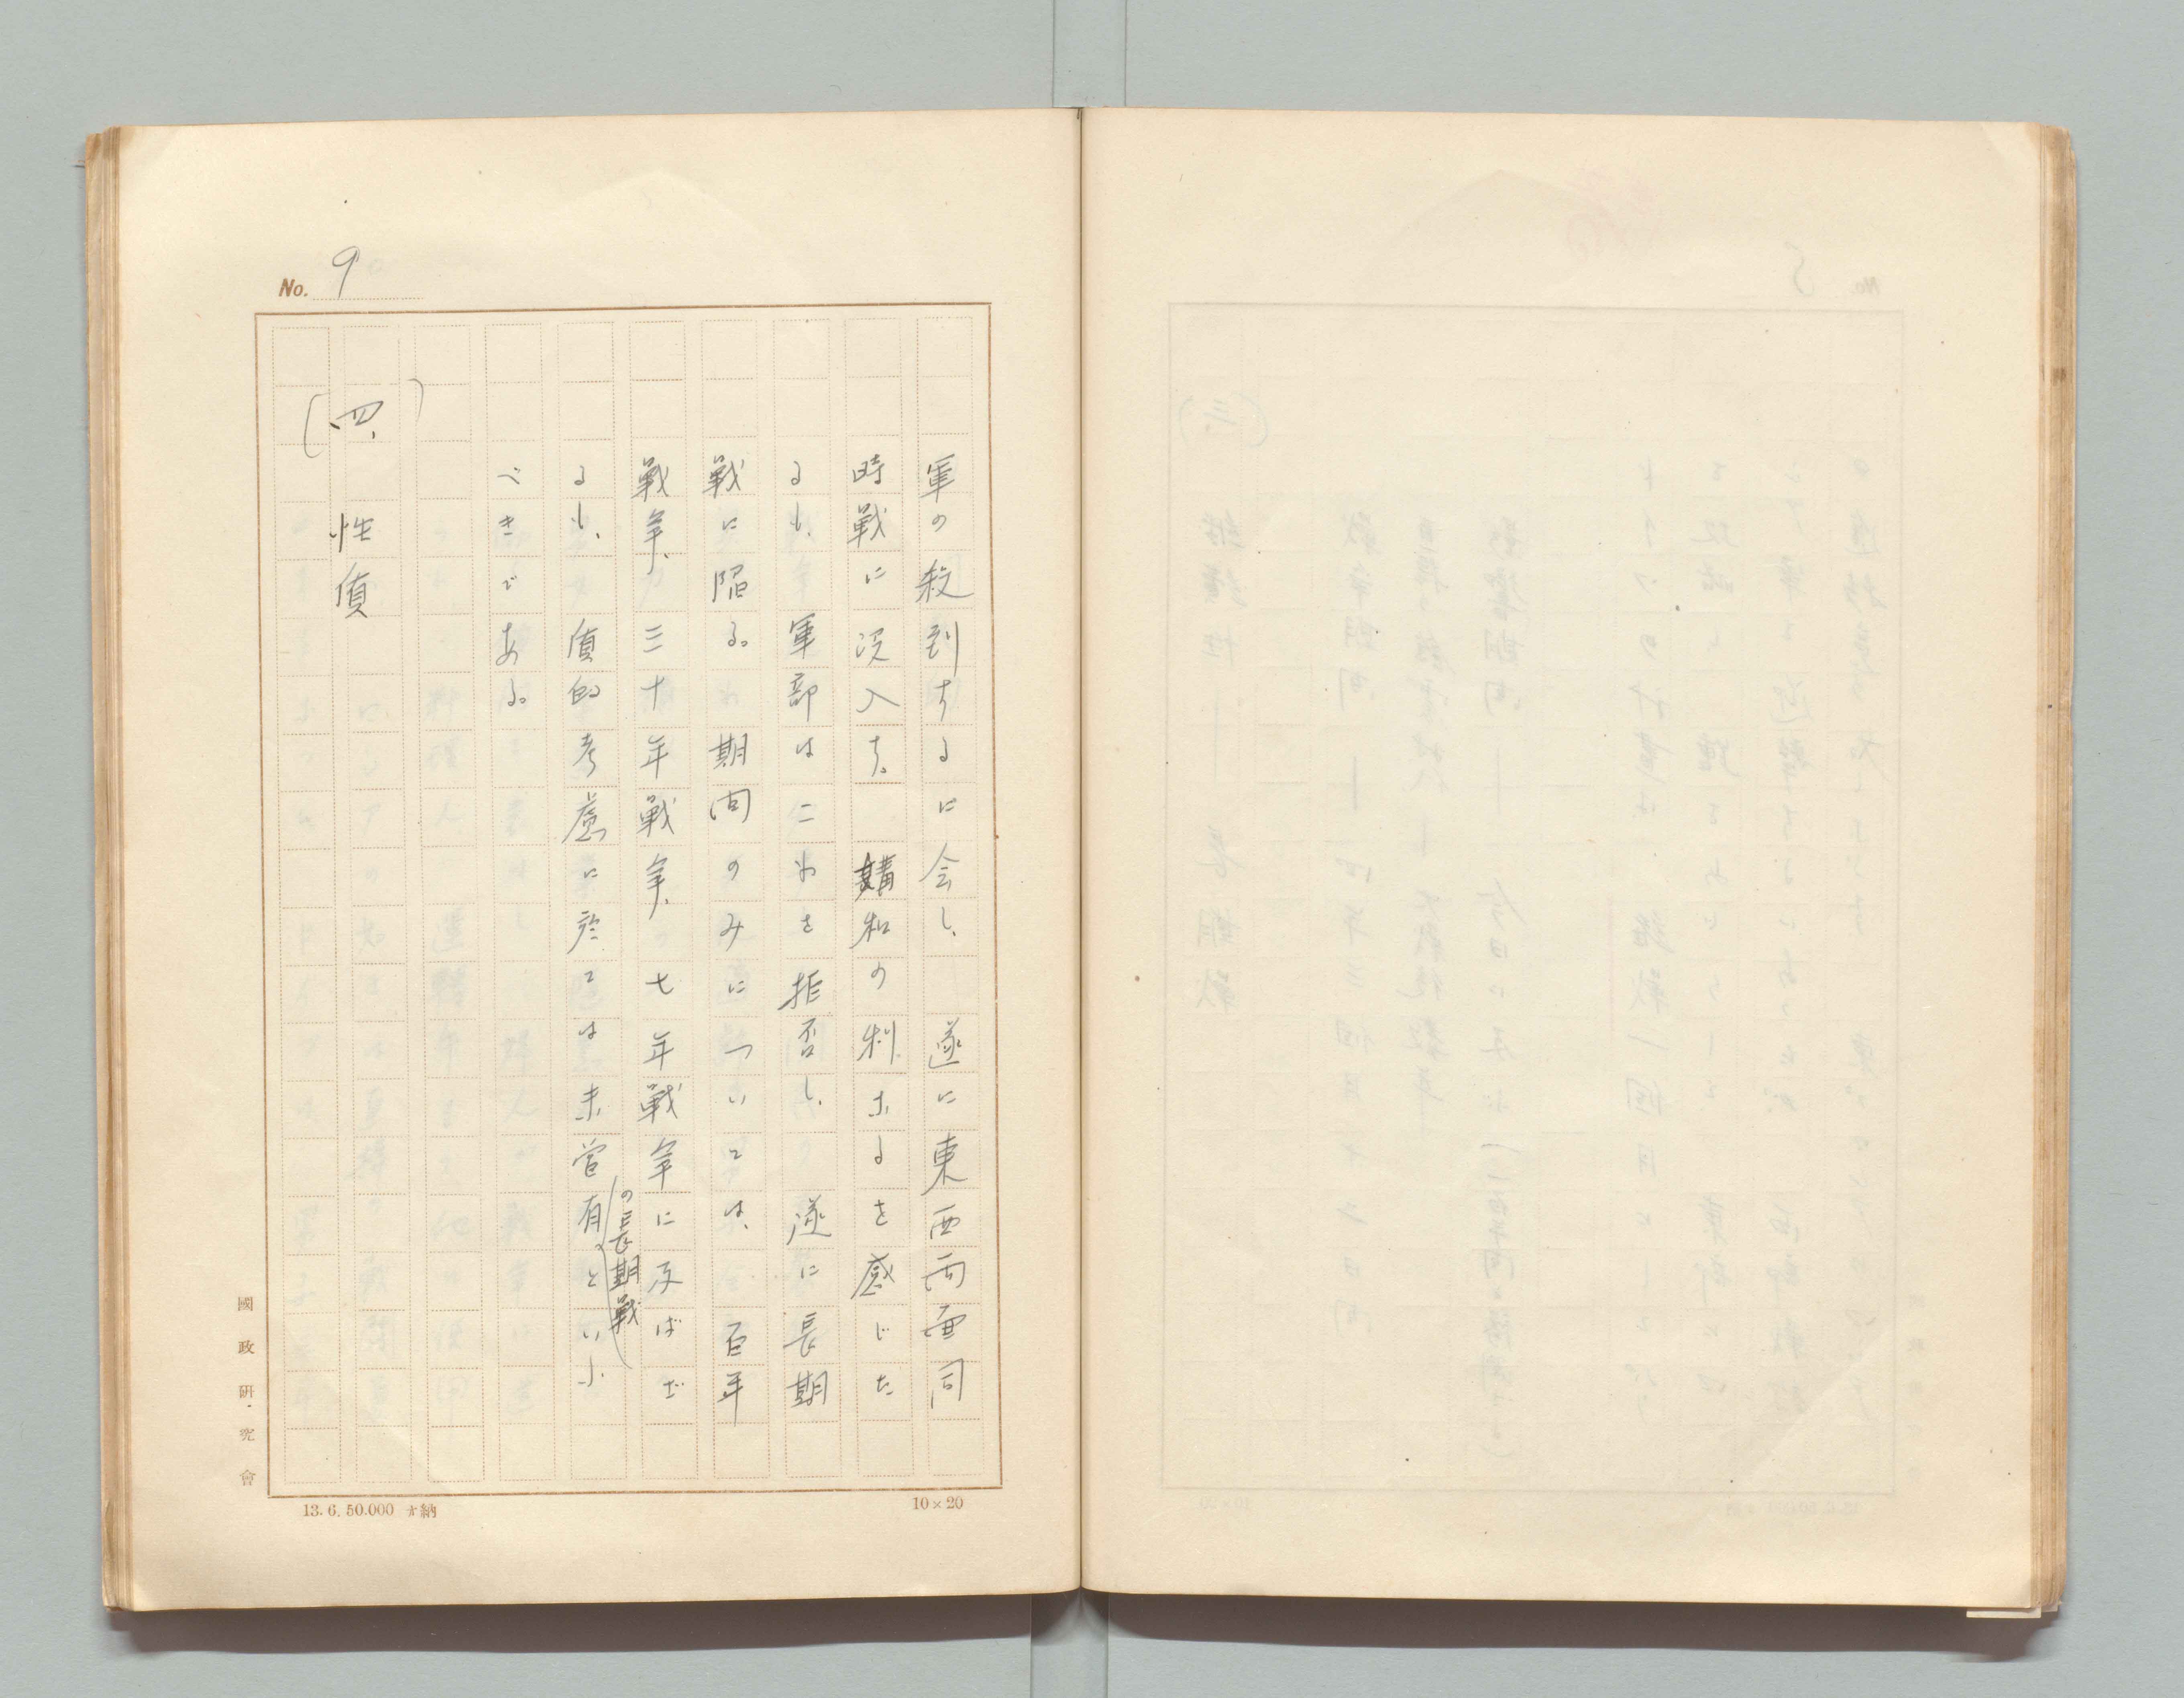 No. 9
軍の殺到するに会し、遂に東西両面同
時戦に没入す。媾和の利あるを感じた
るも、軍部はこれを拒否し、遂に長期
戦に陥る。期間のみについては、百年
戦争、三十年戦争、七年戦争に及ばざ
るも、質的考慮に於ては未曾有の長期戦といふ
べきである。
(四、)性質
國政研究會
13.6.50.000 納
10×20